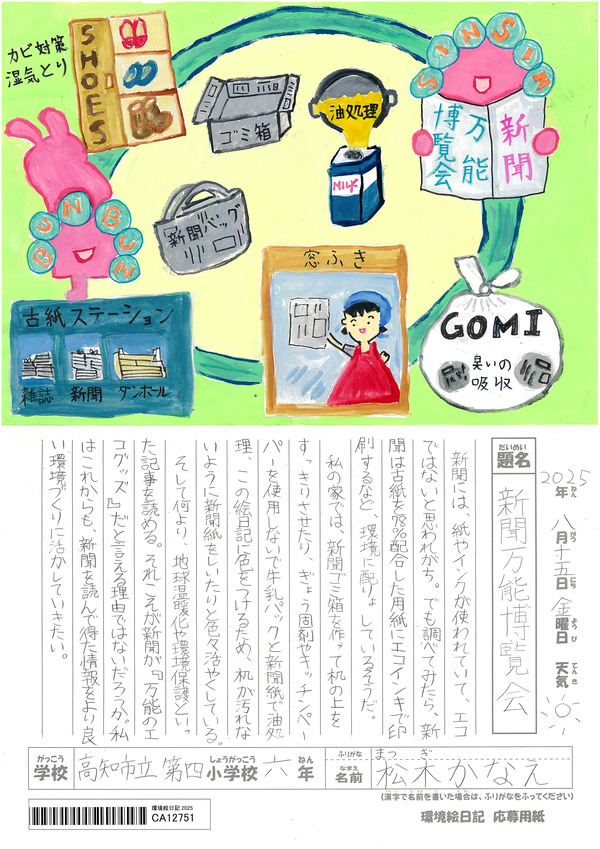 カビ対策
湿気とり
SHOES
ゴミ箱
油処理
MILK
SINSIN
新聞
万能
博覧会
新聞バッグ
BUNBUN
古紙ステーション
雑誌
新聞
ダンボール
窓ふき
GOMI
臭いの
吸収
2025年 八月十五日 金曜日 天気
ねん がつ にち ようび てんき
だいめい
題名
新聞万能博覧会
新聞には、紙やインクが使われていて、エコ
ではないと思われがち。でも調べてみたら、新
聞は古紙を78%配合した用紙にエコインキで印
刷するなど、環境に配りょしているそうだ。
私の家では、新聞ゴミ箱を作って机の上を
すっきりさせたり、ぎょう固剤やキッチンペー
パーを使用しないで牛乳パックと新聞紙で油処
理、この絵日記に色をつけるため、机が汚れな
いように新聞紙をしいたりと色々活やくしている。
そして何より、地球温暖化や環境保護といっ
た記事を読める。それこそが新聞が『万能のエ
コグッズ』だと言える理由ではないだろうか。私
はこれからも、新聞を読んで得た情報をより良
い環境づくりに活かしていきたい。
がっこう しょうがっこう ねん
学校 高知市立 第四小学校 六年
ふりがな まつ ぎ
なまえ
名前 松木かなえ
(漢字で名前を書いた場合は、ふりがなをふってください)
環境絵日記 2025
CA12751
環境絵日記 応募用紙